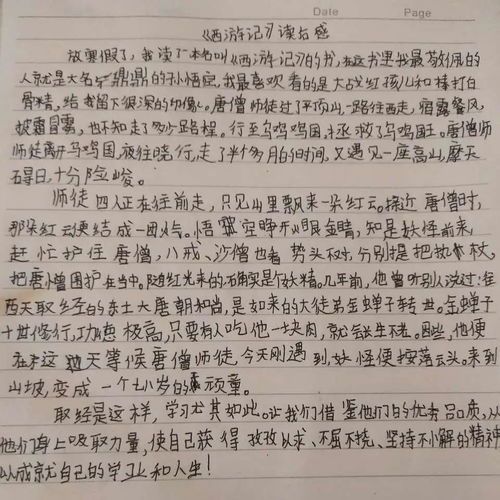 Date Page
《西游记》读后感
放寒假了，我读了一本名叫《西游记》的书，在这书里我最为佩服的
人就是大名鼎鼎的孙悟空，我最喜欢看的是大战红孩儿和棒打白
骨精，给我留下很深的印象。唐僧师徒过了平顶山一路往西走，宿露餐风，
披霜冒露，也不知走了多少路程。行至乌鸡国，拯救了乌鸡国王。唐僧师
师徒离开乌鸡国，夜住晓行，走了半个多月的时间，又遇见一座高山，摩天
碍日，十分险峻。
师徒四人正在往前走，只见山里飘来一朵红云。接近唐僧时，
那朵红云便结成一团火气。悟空睁开火眼金睛，知是妖怪前来，
赶忙护住唐僧，八戒、沙僧也看势头不对，分别提把执杖，
把唐僧围护在当中。随红光来的的确实是个妖精。几年前，他曾听别人说过：往
西天取经的东土大唐朝和尚，是如来的大徒弟金蝉子转世。金蝉子
十世修行，功德极高，只要有人吃他一块肉，就会长生不老。因此，他便
在这边天等候唐僧师徒，今天刚遇到，妖怪便按落云头。来到
山坡，变成一个七八岁的顽童。
取经是这样，学习尤其如此。让我们借鉴他们的优秀品质，从
他们身上吸取力量，使自己获得孜孜以求、不屈不挠、坚持不懈的精神
以成就自己的学业和人生！